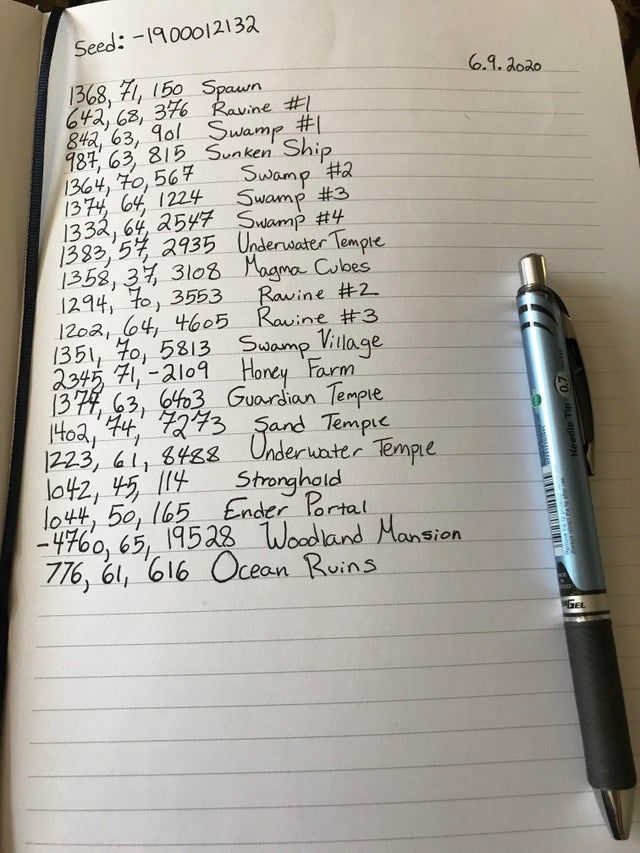 Seed: -1900012132
6.9.2020
1368, 71, 150 Spawn
642, 68, 376 Ravine #1
842, 63, 901 Swamp #1
987, 63, 815 Sunken Ship
1364, 70, 567 Swamp #2
1374, 64, 1224 Swamp #3
1332, 64, 2547 Swamp #4
1383, 57, 2935 Underwater Temple
1358, 37, 3108 Magma Cubes
1294, 70, 3553 Ravine #2
1202, 64, 4605 Ravine #3
1351, 70, 5813 Swamp Village
2345, 71, -2109 Honey Farm
1377, 63, 6403 Guardian Temple
1402, 74, 7273 Sand Temple
1223, 61, 8488 Underwater Temple
1042, 45, 114 Stronghold
1044, 50, 165 Ender Portal
-4760, 65, 19528 Woodland Mansion
776, 61, 616 Ocean Ruins
Needle Tip 0.7
GEL